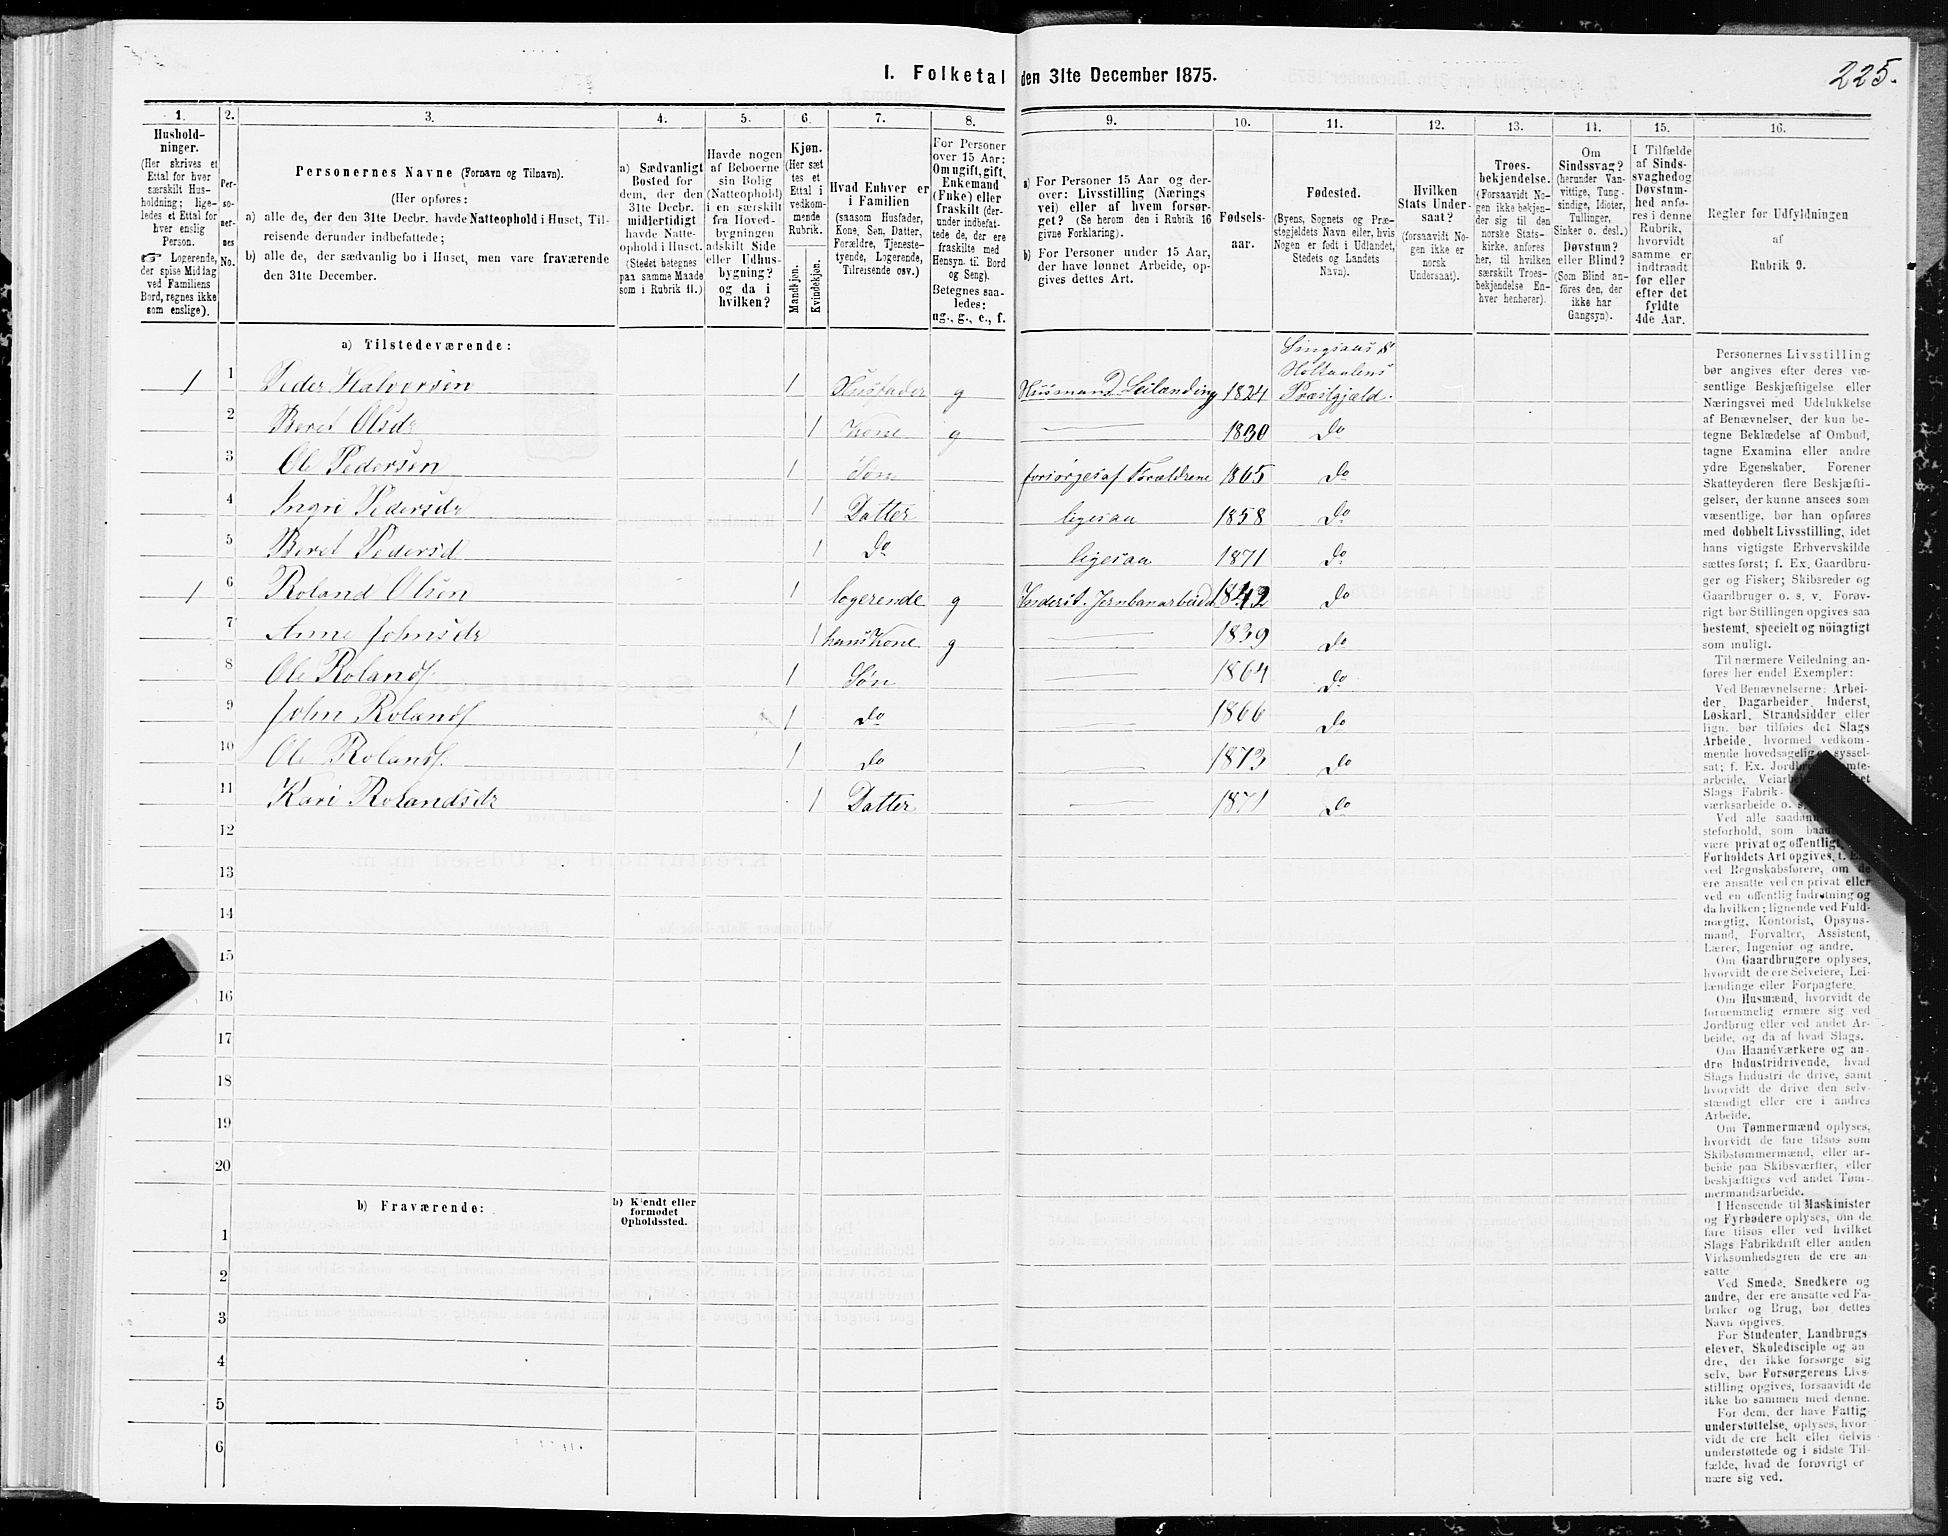 I. Folketal den 31te December 1875.
225.
1. 2. 3. 4. 5. 6. 7. 8. 9. 10. 11. 12. 13. 14. 15. 16.
Hushold-
ninger.
(Her skrives et
Ettal for hver
særskilt Hus-
holdning; lige-
ledes et Ettal for
hver enslig
Person.
☞ Logerende,
der spise Middag
ved Familiens
Bord, regnes ikke
som enslige).
Per-
so-
ner-
nes
No.
Personernes Navne (Fornavn og Tilnavn).
(Her opføres:
a) alle de, der den 31te Decbr. havde Natteophold i Huset, Til-
reisende derunder indbefattede;
b) alle de, der sædvanlig bo i Huset, men vare fraværende
den 31te December.
a) Sædvanligt
Bosted for
dem, der den
31te Decbr.
midlertidigt
havde Natte-
ophold i Huset.
(Stedet betegnes
paa samme Maade
som i Rubrik 11.)
Havde nogen
af Beboerne
sin Bolig
(Natteophold)
i en særskilt
fra Hoved-
bygningen
adskilt Side
eller Udhus-
bygning?
og da i
hvilken?
Kjøn.
(Her sæt
tes et
Ettal i
vedkom-
mende
Rubrik.
Mandkjøn.
Kvindekjøn.
Hvad Enhver er
i Familien
(saasom Husfader,
Kone, Søn, Datter,
Forældre, Tjeneste-
tyende, Logerende,
Tilreisende osv.)
For Personer
over 15 Aar:
Om ugift, gift,
Enkemand
(Enke) eller
fraskilt (der-
under indbefat-
tede de, der ere
fraskilte med
Hensyn til Bord
og Seng).
Betegnes saa-
ledes:
ug., g., e., f.
a) For Personer 15 Aar og der-
over: Livsstilling (Nærings
vei) eller af hvem forsør-
get? (Se herom den i Rubrik 16
givne Forklaring).
b) For Personer under 15 Aar,
der have lønnet Arbeide, op-
gives dettes Art.
Fødsels-
aar.
Fødested.
(Byens, Sognets og Præ-
stegjeldets Navn eller, hvis
Nogen er født i Udlandet,
Stedets og Landets
Navn).
Hvilken
Stats Under-
saat?
(forsaavidt No-
gen ikke er
norsk
Undersaat).
Troes-
bekjendelse.
(Forsaavidt No-
gen ikke bekjen-
der sig til den
norske Stats-
kirke, anføres
her, til hvilken
særskilt Troes-
bekjendelse En-
hver henhører).
Om
Sindssvag?
(herunder Van-
vittige, Tung-
sindige, Idioter,
Tullinger,
Sinker o. desl.)
Døvstum?
eller Blind?
(Som Blind an-
føres den, der
ikke har
Gangsyn).
I Tilfælde
af Sinds-
svaghed og
Døvstum-
hed anfø-
res i denne
Rubrik,
hvorvidt
samme er
indtraadt
før eller
efter det
fyldte
4de Aar.
Regler for Udfyldningen
af
Rubrik 9.
a) Tilstedeværende:
Singsaas &
Holtaalens
1 1 Peder Halvorsen 1 Husfader g Husmand Leilænding 1824 Præstgjæld.
2 Beret Olsdr 1 Kone g 1830 Do
3 Ole Pedersen 1 Søn forsørges af Forældrene 1865 Do
4 Ingri Pedersdr 1 Datter ligesaa 1858 Do
5 Beret Pedersd 1 Do ligesaa 1871 Do
1 6 Roland Olsen 1 logerende g Inderst. Jernbanarbeider 1842 Do
7 Anne Johnsdr 1 hans Kone g 1839 Do
8 Ole Rolands. 1 Søn 1864 Do
9 John Rolands 1 Do 1866 Do
10 Ole Rolands. 1 Do 1873 Do
11 Kari Rolandsdr 1 Datter 1871 Do
12
13
14
15
16
17
18
19
20
b) Fraværende:
b) Kjendt eller
formodet
Opholdssted.
1
2
3
4
5
6
Personernes Livsstilling
bør angives efter deres væ-
sentlige Beskjæftigelse eller
Næringsvei med Udelukkelse
af Benævnelser, der kun be-
tegne Beklædelse af Ombud,
tagne Examina eller andre
ydre Egenskaber. Forener
Skatteyderen flere Beskjæfti-
gelser, der kunne ansees som
væsentlige, bør han opføres
med dobbelt Livsstilling, idet
hans vigtigste Erhvervskilde
sættes først; f. Ex. Gaardbru-
ger og Fisker; Skibsreder og
Gaardbruger o. s. v. Forøv-
rigt bør Stillingen opgives saa
bestemt, specielt og nöiagtigt
som muligt.
Til nærmere Veiledning an-
føres her endel Exempler:
Ved Benævnelserne: Arbei-
der, Dagarbeider, Inderst,
Løskarl, Strandsidder eller
lign. bør tilføies det Slags
Arbeide, hvormed vedkom-
mende hovedsagelig er syssel-
sat; f. Ex. Jordbru
arbeide, Veiarbei
Slags Fabrik-
værksarbeide o. s.
Ved alle saadan
steforhold, som baa
være privat og offentligt,
Forholdets Art opgives, t. E
ved Regnskabsførere, om de
ere ansatte ved en privat eller
ved en offentlig Indretning og
da hvilken; lignende ved Fuld-
mægtig, Kontorist, Opsyns-
mand, Forvalter, Assistent,
Lærer, Ingeniør og andre.
Om Gaardbrugere oplyses,
hvorvidt de ere Selveiere, Lei-
lændinge eller Forpagtere.
Om Husmænd, hvorvidt de
fornemmelig ernære sig ved
Jordbrug eller ved andet Ar-
beide, og da af hvad Slags.
Om Haandværkere og an-
dre Industridrivende, hvad
Slags Industri de drive, samt
hvorvidt de drive den selv-
stændigt eller ere i andres
Arbeide.
Om Tømmermænd oplyses,
hvorvidt de fare tilsøs som
Skibstømmermænd, eller ar-
beide paa Skibsværfter, eller
beskjæftiges ved andet Tøm-
mermandsarbeide.
I Henseende til Maskinister
og Fyrbødere oplyses, om de
fare tilsøs eller ved hvilket
Slags Fabrikdrift eller anden
Virksomhedsgren de ere an-
satte
Ved Smede, Snedkere og
andre, der ere ansatte ved Fa-
briker og Brug, bør dettes
Navn opgives.
For Studenter, Landbrugs
elever, Skoledisciple og an
dre, der ikke forsørge sig
selv, bør Forsørgerens Livs-
stilling opgives, forsaavidt de
ikke bo sammen med denne.
For dem, der have Fattig-
understøttelse, oplyses, hvor-
vidt de ere helt eller delvis
understøttede og i sidste Til-
fælde, hvad de forøvrigt er
nære sig ved.